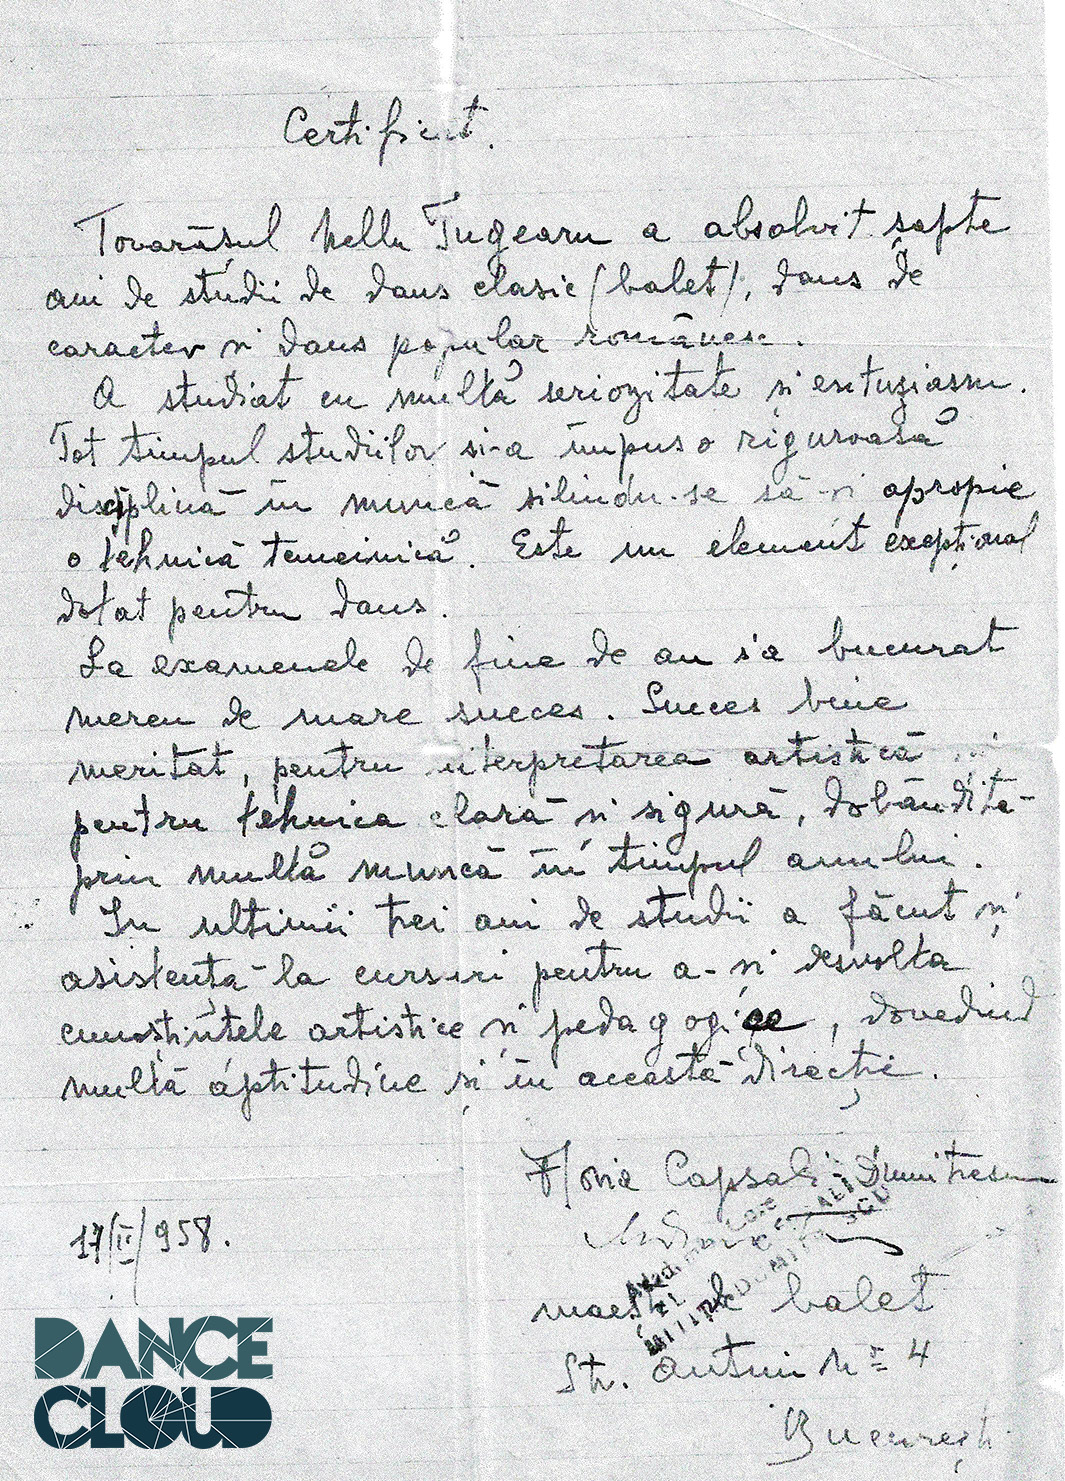 Certificat.
Tovarăşul Nellu Tugearu a absolvit şapte
ani de studii de dans clasic (balet), dans de
caracter şi dans popular românesc.
A studiat cu multă seriozitate şi entuziasm.
Tot timpul studiilor şi-a impus o riguroasă
disciplină în muncă silindu-se să-şi apropie
o tehnică temeinică. Este un element excepţional
dotat pentru dans.
La examenele de fine de an s'a bucurat
mereu de mare succes. Succes bine
meritat, pentru interpretarea artistică şi
pentru tehnica clară şi sigură, dobândită
prin multă muncă în timpul anului.
In ultimii trei ani de studii a făcut şi
asistenţă la cursuri pentru a-şi desvolta
cunoştinţele artistice şi pedagogice, dovedind
multă aptitudine şi în această direcţie.
Floria Capsali-Dumitrescu
17/II/958.
maestră de balet
Str. Antim No 4
Bucureşti
DANCE
CLOUD